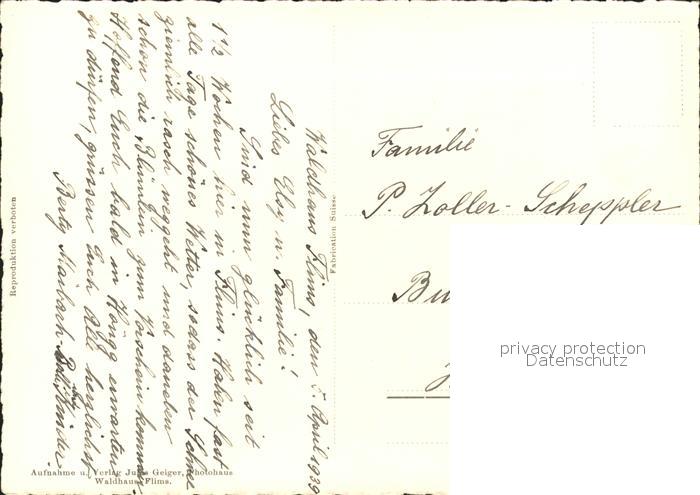 Waldhaus Flims, den 5. April 1939
Liebes Elsy u. Familie!
Sind nun glücklich seit
1½ Wochen hier in Flims. Haben fast
alle Tage schönes Wetter, sodass der Schnee
ziemlich rasch weggeht und daneben
schon die Blümlein zum Vorschein kommen.
Hoffend Euch bald in Höngg erwarten
zu dürfen, grüssen Euch Alle herzlichst
Berty Maibach und Kinder
Familie
P. Zoller-Scheppler
Bu
Fabrication Suisse
Reproduktion verboten
Aufnahme u. Verlag Jules Geiger, Photohaus
Waldhaus-Flims.
privacy protection
Datenschutz